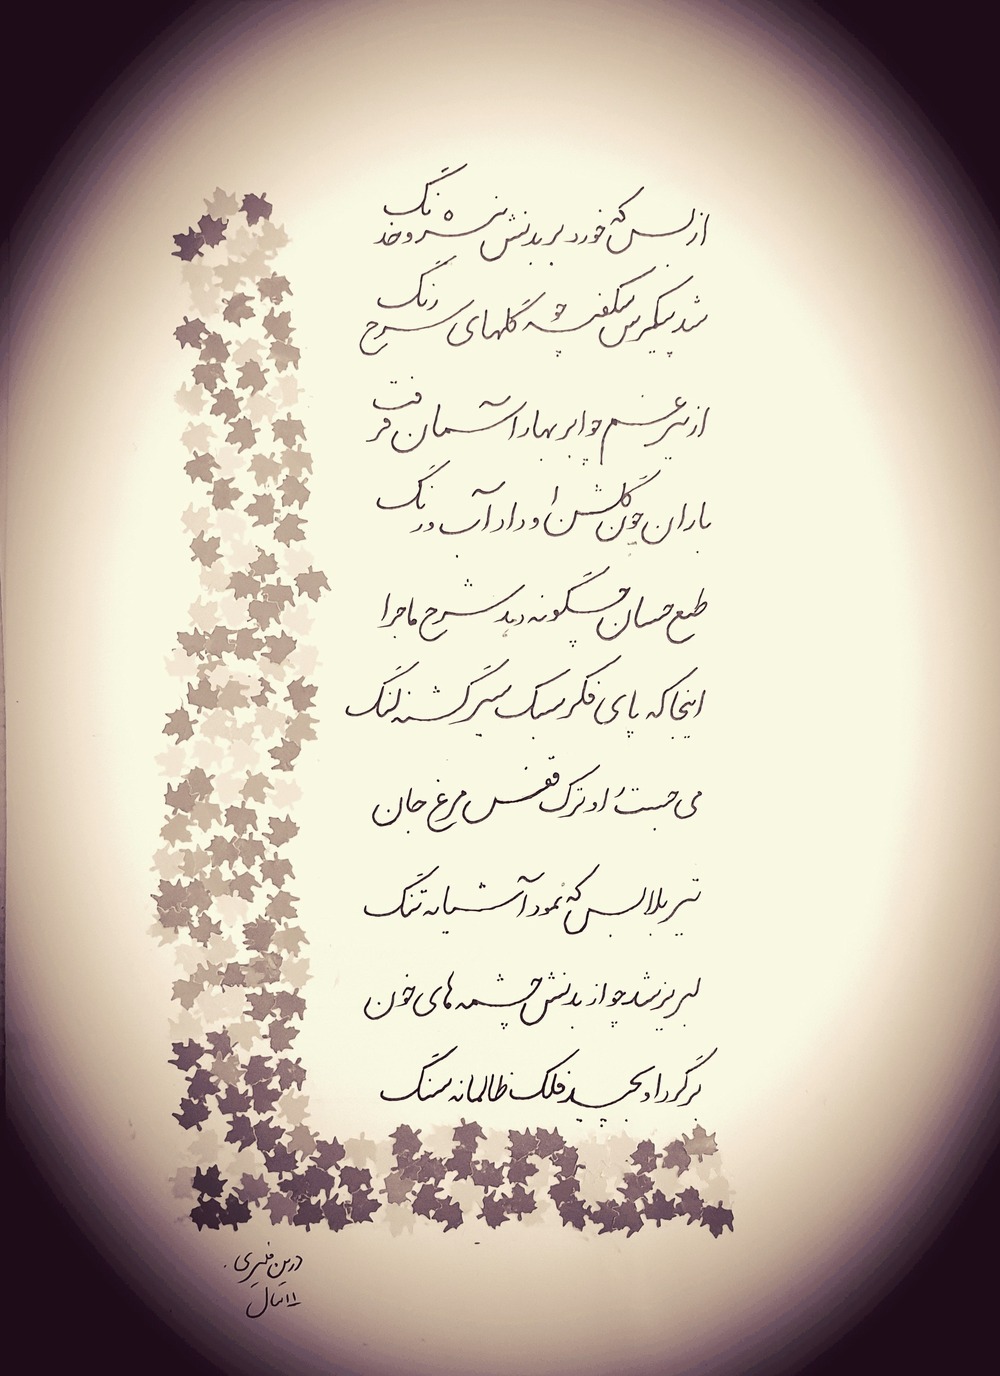 از بس که خورد بر بدنش نیزه و خدنگ
شد پیکرش شکفته چو گلهای سرخ رنگ
از تیر غم چو ابر بهار آسمان گرفت
باران چون گلشن او داد آب و رنگ
طبع حسان چگونه دهد شرح ماجرا
اینجا که پای فکر سبک سیر گشته لنگ
می جست او ترک قفس مرغ جان
تیر بلا بس که نمود آشیانه تنگ
لبریز شد چو از بدنش چشمه های خون
بر گرد او بچید فلک ظالمانه سنگ
درین
۱۱ سال